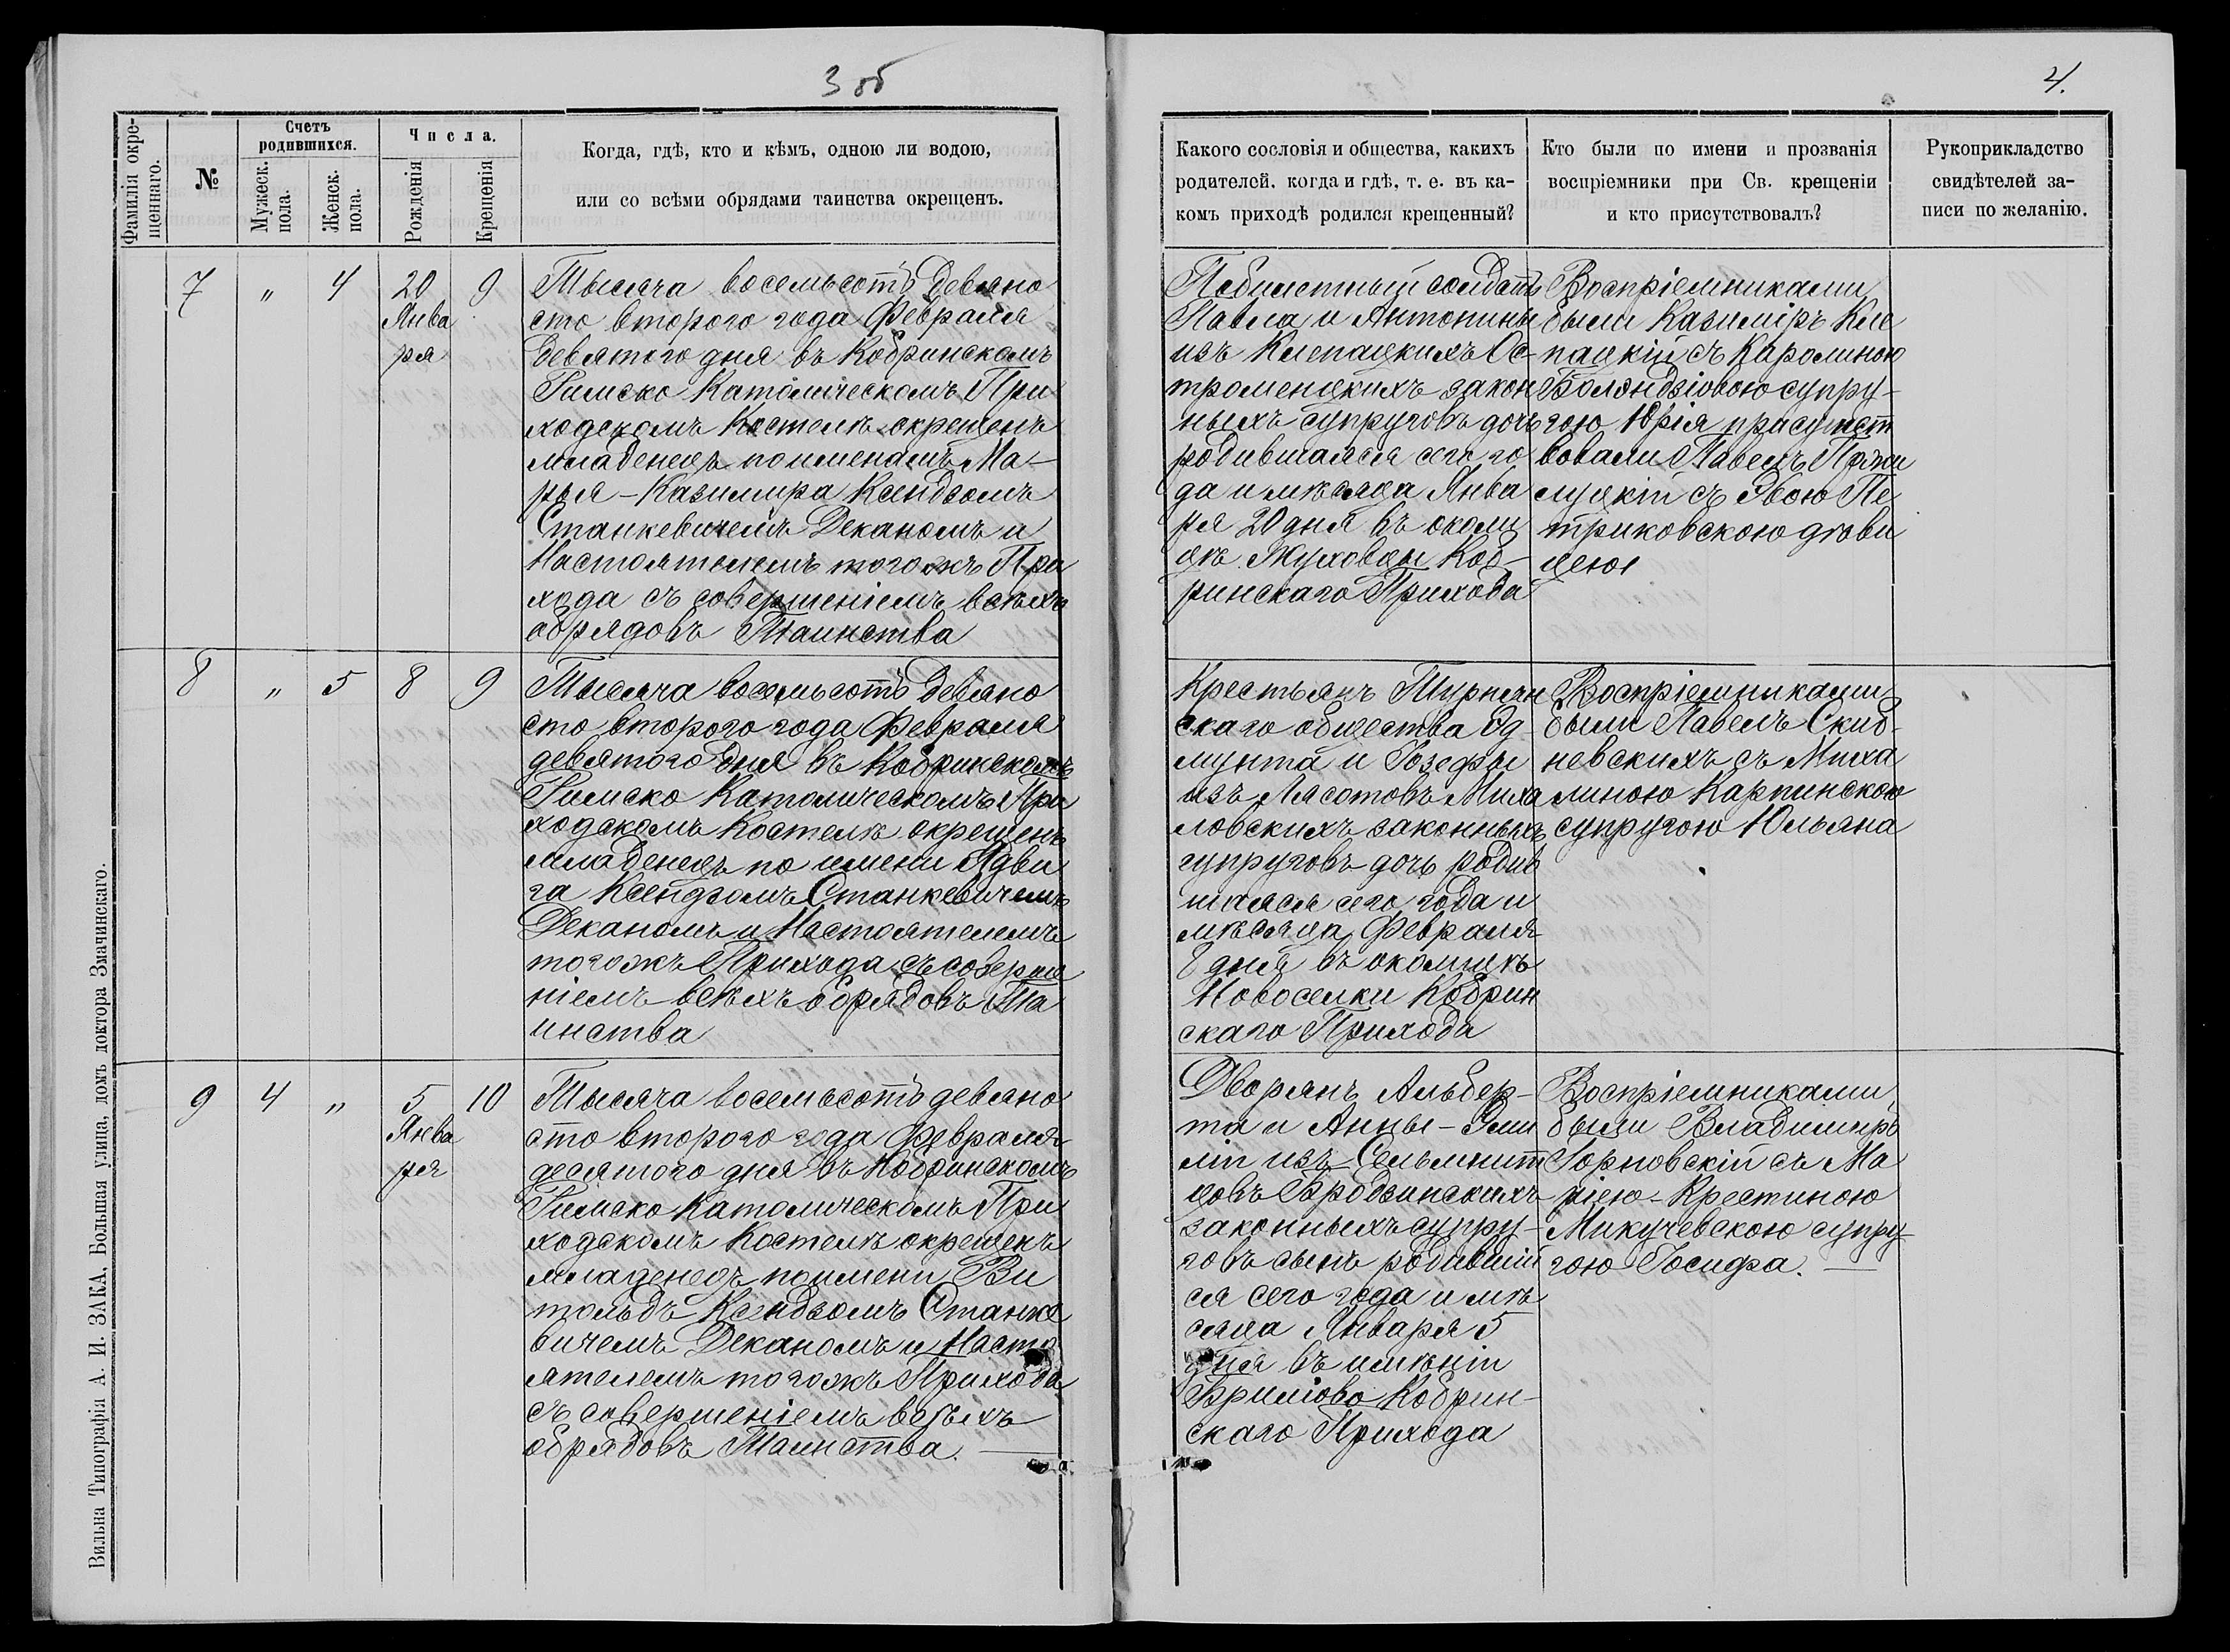 3 об
4.
Фамилія окре-
щеннаго.
№
Счетъ
родившихся.
Мужеск.
пола.
Женск.
пола.
Числа.
Рожденія
Крещенія
Когда, гдѣ, кто и кѣмъ, одною ли водою,
или со всѣми обрядами таинства окрещенъ.
Какого сословія и общества, какихъ
родителей, когда и гдѣ, т. е. въ ка-
комъ приходѣ родился крещенный?
Кто были по имени и прозванія
воспріемники при Св. крещеніи
и кто присутствовалъ?
Рукоприкладство
свидѣтелей за-
писи по желанію.
7 " 4 20 9
Янва
ря
Тысяча восемьсотъ девяно
сто второго года Февраля
девятого дня въ Кобринскомъ
Римско Католическомъ При
ходскомъ Костелѣ окрещенъ
младенецъ по именамъ Ма-
рья-Казимира Ксендзомъ
Станкевичемъ Деканомъ и
Настоятелемъ тогожъ При
хода съ совершеніемъ всѣхъ
обрядовъ Таинства
солдатъ
Павла и Антонины
изъ Клепацкихъ Ос-
тромецкихъ закон
ныхъ супруговъ дочь
родившаяся сего го
да и мѣсяца Янва
ря 20 дня въ околи
цѣ Жуховцы Коб-
ринскаго Прихода
Воспріемниками
были Казимиръ Кле
пацкій съ Каролиною
супру-
гою Юрія присутст
вовали Павелъ
съ Эвою Пе
триковскою дѣви
цею
8 " 5 8 9
Тысяча восемьсотъ девяно
сто второго года Февраля
девятого дня въ Кобринскомъ
Римско Католическомъ При
ходскомъ Костелѣ окрещенъ
младенецъ по имени Ядви
га Ксендзомъ Станкевичемъ
Деканомъ и Настоятелемъ
тогожъ Прихода съ соверше
ніемъ всѣхъ обрядовъ Та
инства
Крестьянъ
скаго общества Эд
мунта и Іозефы
изъ Лясотовъ Миха
ловскихъ законныхъ
супруговъ дочь родив
шаяся сего года и
мѣсяца Февраля
8 дня въ околицѣ
Новоселки Кобрин
скаго Прихода
Воспріемниками
были Павелъ Скиб-
невскихъ съ Миха
линою Карпинскою
супругою Юльяна
9 4 " 5 10
Янва
ря
Тысяча восемьсотъ девяно
сто второго года Февраля
десятого дня въ Кобринскомъ
Римско Католическомъ При
ходскомъ Костелѣ окрещенъ
младенецъ по имени Ви
тольдъ Ксендзомъ Станке
вичемъ Деканомъ и Насто
ятелемъ тогожъ Прихода
съ совершеніемъ всѣхъ
обрядовъ Таинства.
Дворянъ Альбер-
та и Анны-Эми
ліи изъ
Бродзинскихъ
законныхъ супру-
говъ сынъ родивший
ся сего года и мѣ
сяца Января 5
дня въ имѣніи
Брилiово Кобрин-
скаго Прихода
Воспріемниками
были Владимиръ
Горновскій съ Ма
ріею-Крестиною
Микучевскою супру
гою Іосифа.
Вильна Типографія А. И. ЗАКА, Большая улица, домъ доктора Змачинскаго.